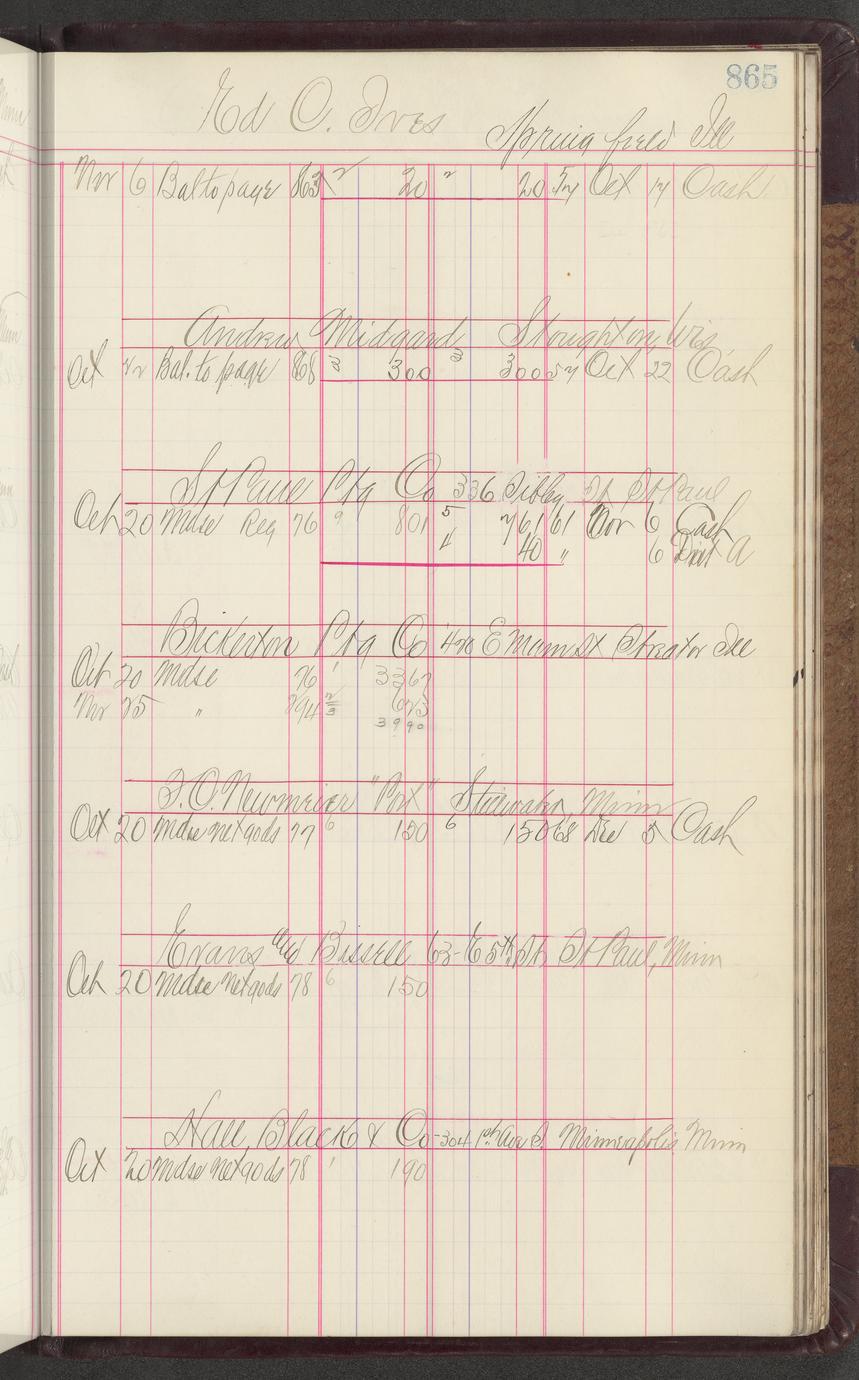 865
Ed O. Ives Springfield Ill
Nov 6 Bal to page 863 2 20 2 20 57 Oct 17 Cash
Andrew Midgard Stoughton, Wis
Oct 22 Bal. to page 868 3 300 3 300 57 Oct 22 Cash
St Paul Ptg Co 336 Sibley St St Paul
Oct 20 Mdse Reg 76 9 801 5 761 61 Nov 6 Cash
4 40 " 6 Disct A
Bickerton Ptg Co E Main St Streator Ill
Oct 20 Mdse 76 1 3367
Nov 25 " 294 2 623
3 3990
Newmeier "Post" Stillwater, Minn
Oct 20 Mdse net gods 77 6 150 6 150 68 Dec 5 Cash
Evans and Bissell 63- E 5th St St Paul, Minn
Oct 20 Mdse net gods 78 6 150
Hall, Black & Co - 304 1st Ave S. Minneapolis Minn
Oct 20 Mdse net gods 78 1 190